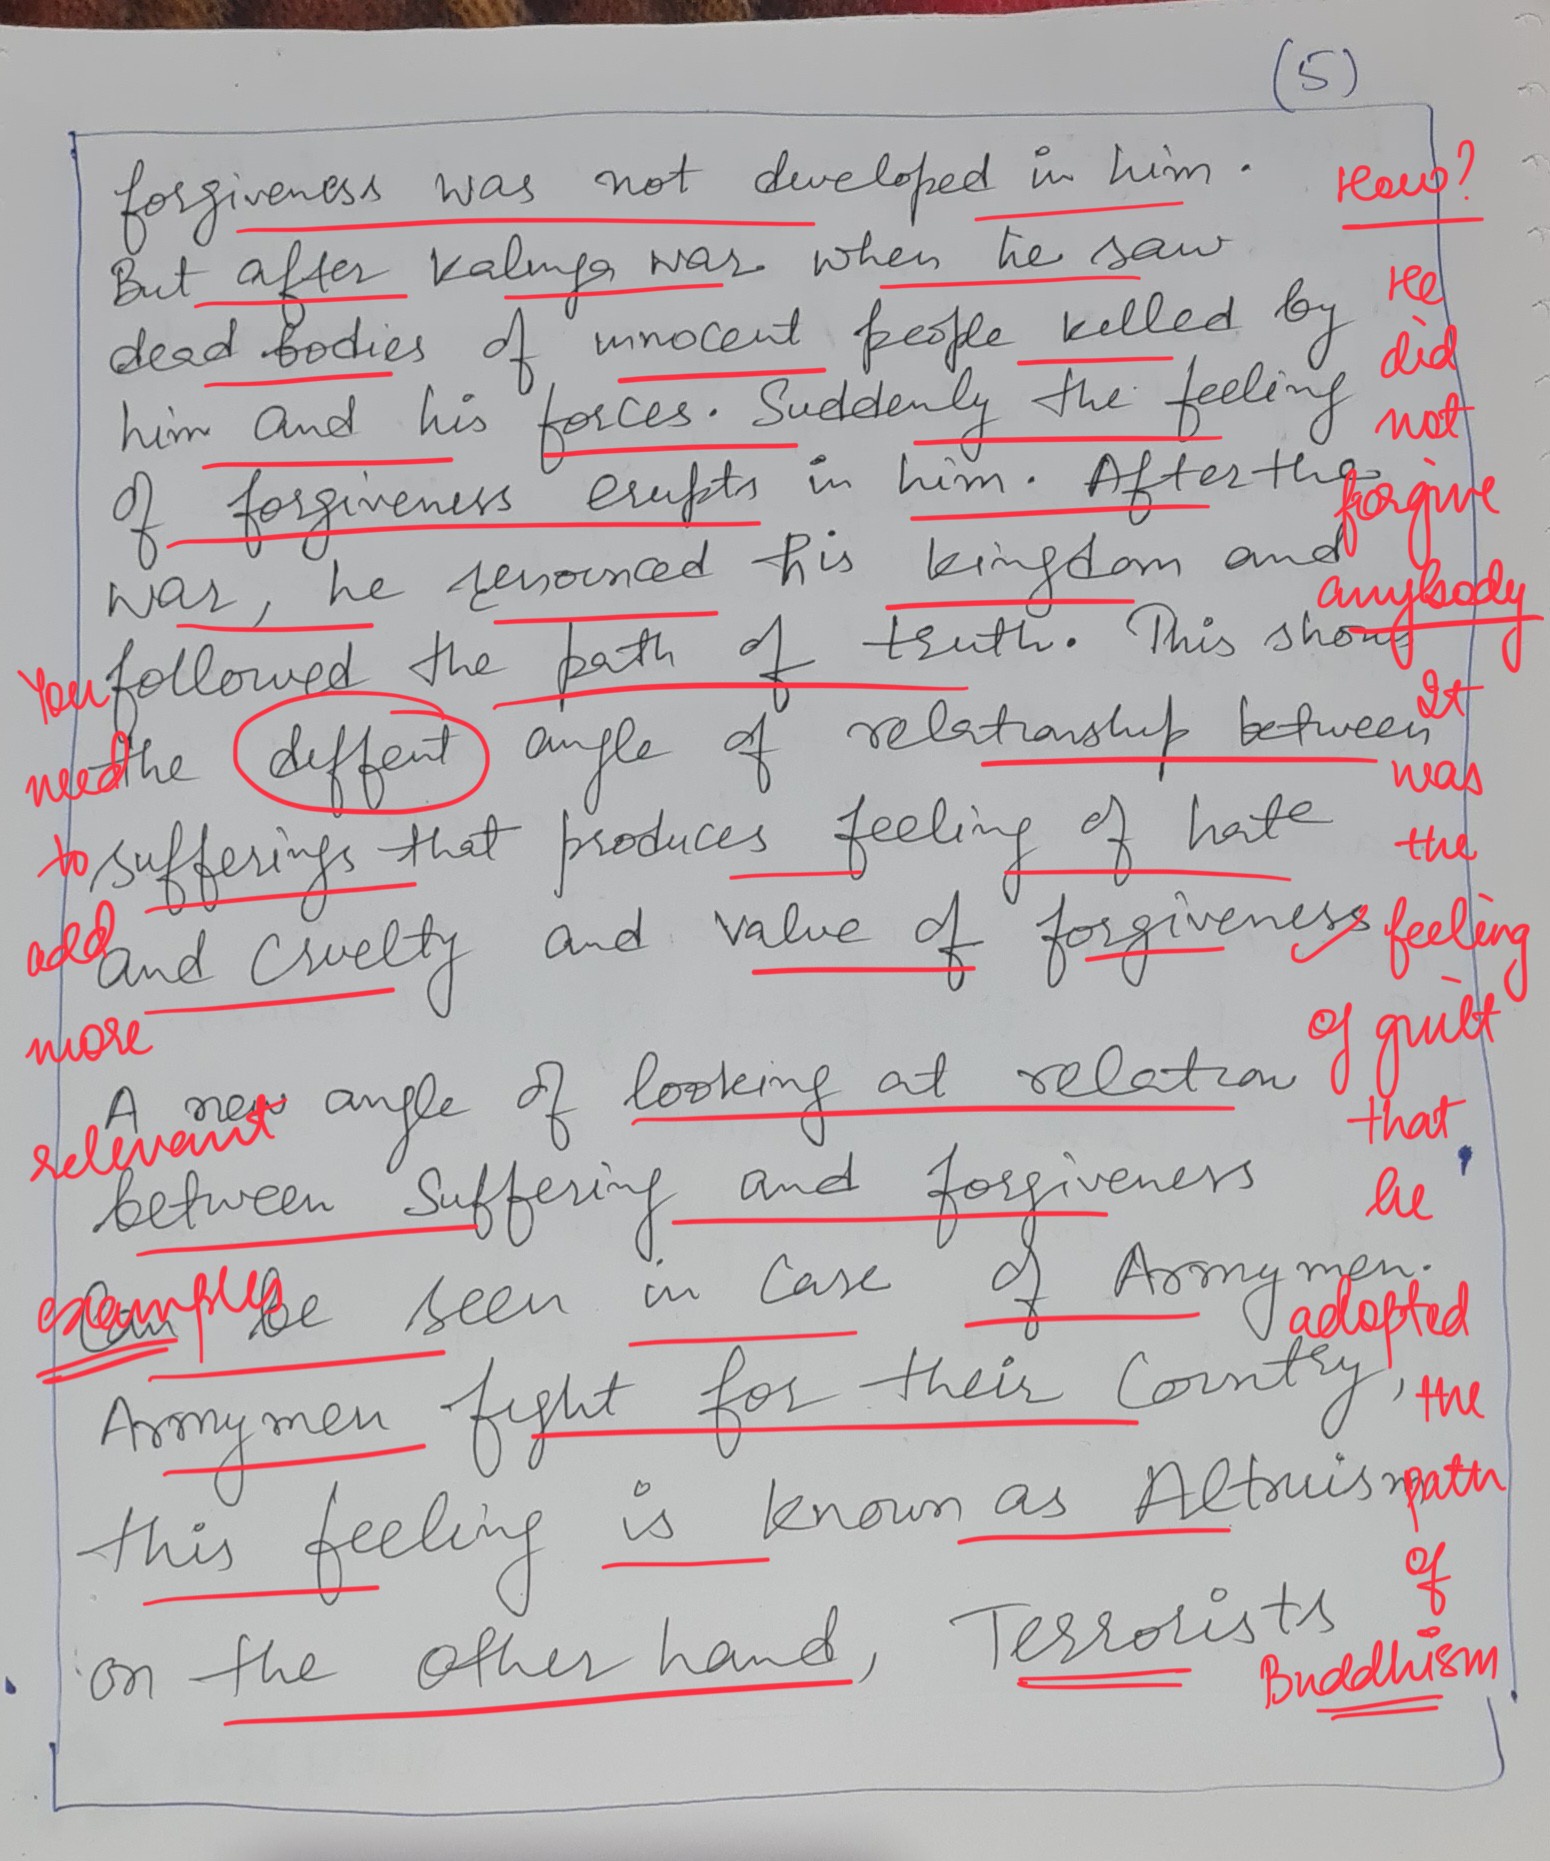 (5)
forgiveness was not developed in him.
But after Kalinga war when he saw
dead bodies of innocent people killed by
him and his forces. Suddenly the feeling
of forgiveness erupts in him. After the
war, he renounced his kingdom and
followed the path of truth. This shows
the diffent angle of relationship between
sufferings that produces feeling of hate
and cruelty and value of forgiveness
A new angle of looking at relation
between suffering and forgiveness
Can be seen in Case of Armymen.
Armymen fight for their Country,
this feeling is known as Altruism
on the other hand, Terrorists
You
need
to
add
more
relevant
examples
How?
He
did
not
forgive
anybody
It
was
the
feeling
of guilt
that
he
adopted
the
path
of
Buddhism